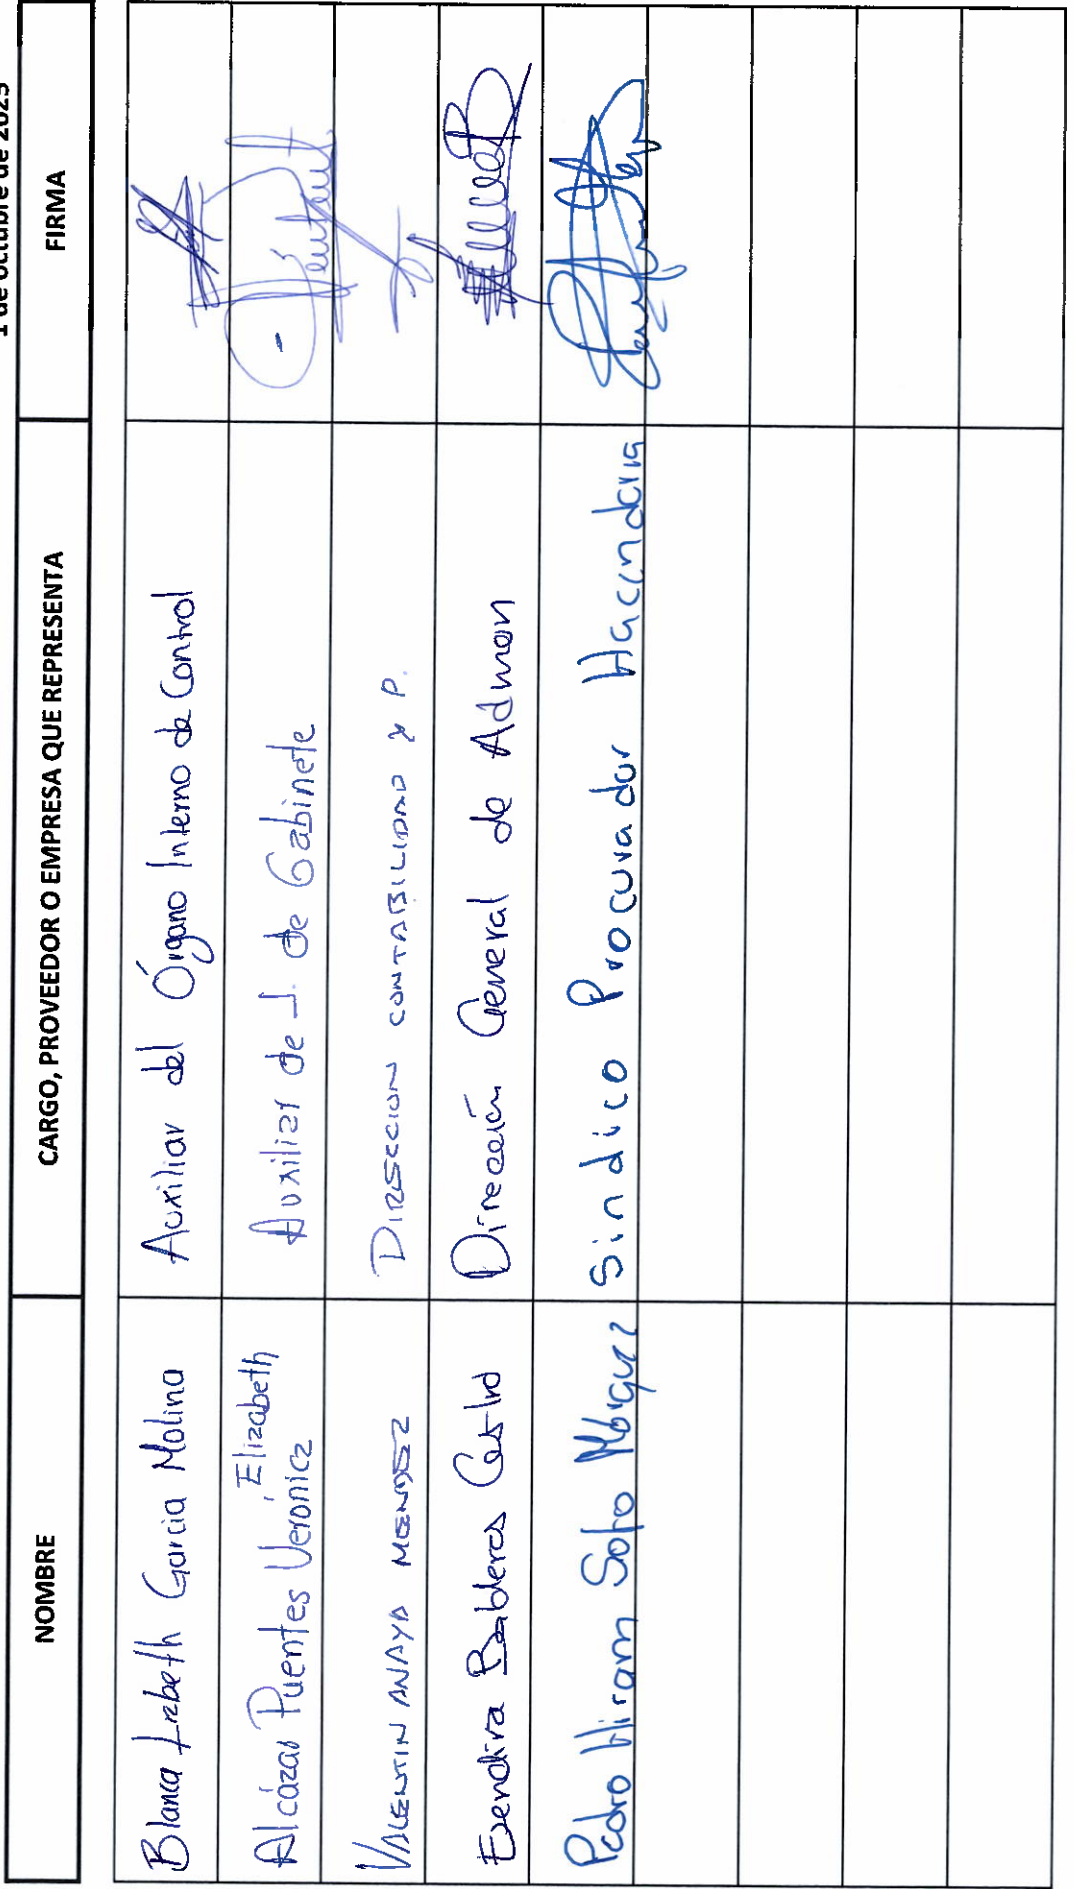 1 de octubre de 2025
NOMBRE CARGO, PROVEEDOR O EMPRESA QUE REPRESENTA FIRMA
Blanca Lizbeth Garcia Molina Auxiliar del Órgano Interno de Control
Elizabeth
Alcázar Puentes Veronica Auxiliar de J. de Gabinete
VALENTIN ANAYA MENDEZ DIRECCION CONTABILIDAD y P.
Erendira Balderas Castro Dirección General de Admon
Pedro Hiram Soto Márquez Sindico Procurador Hacendaria